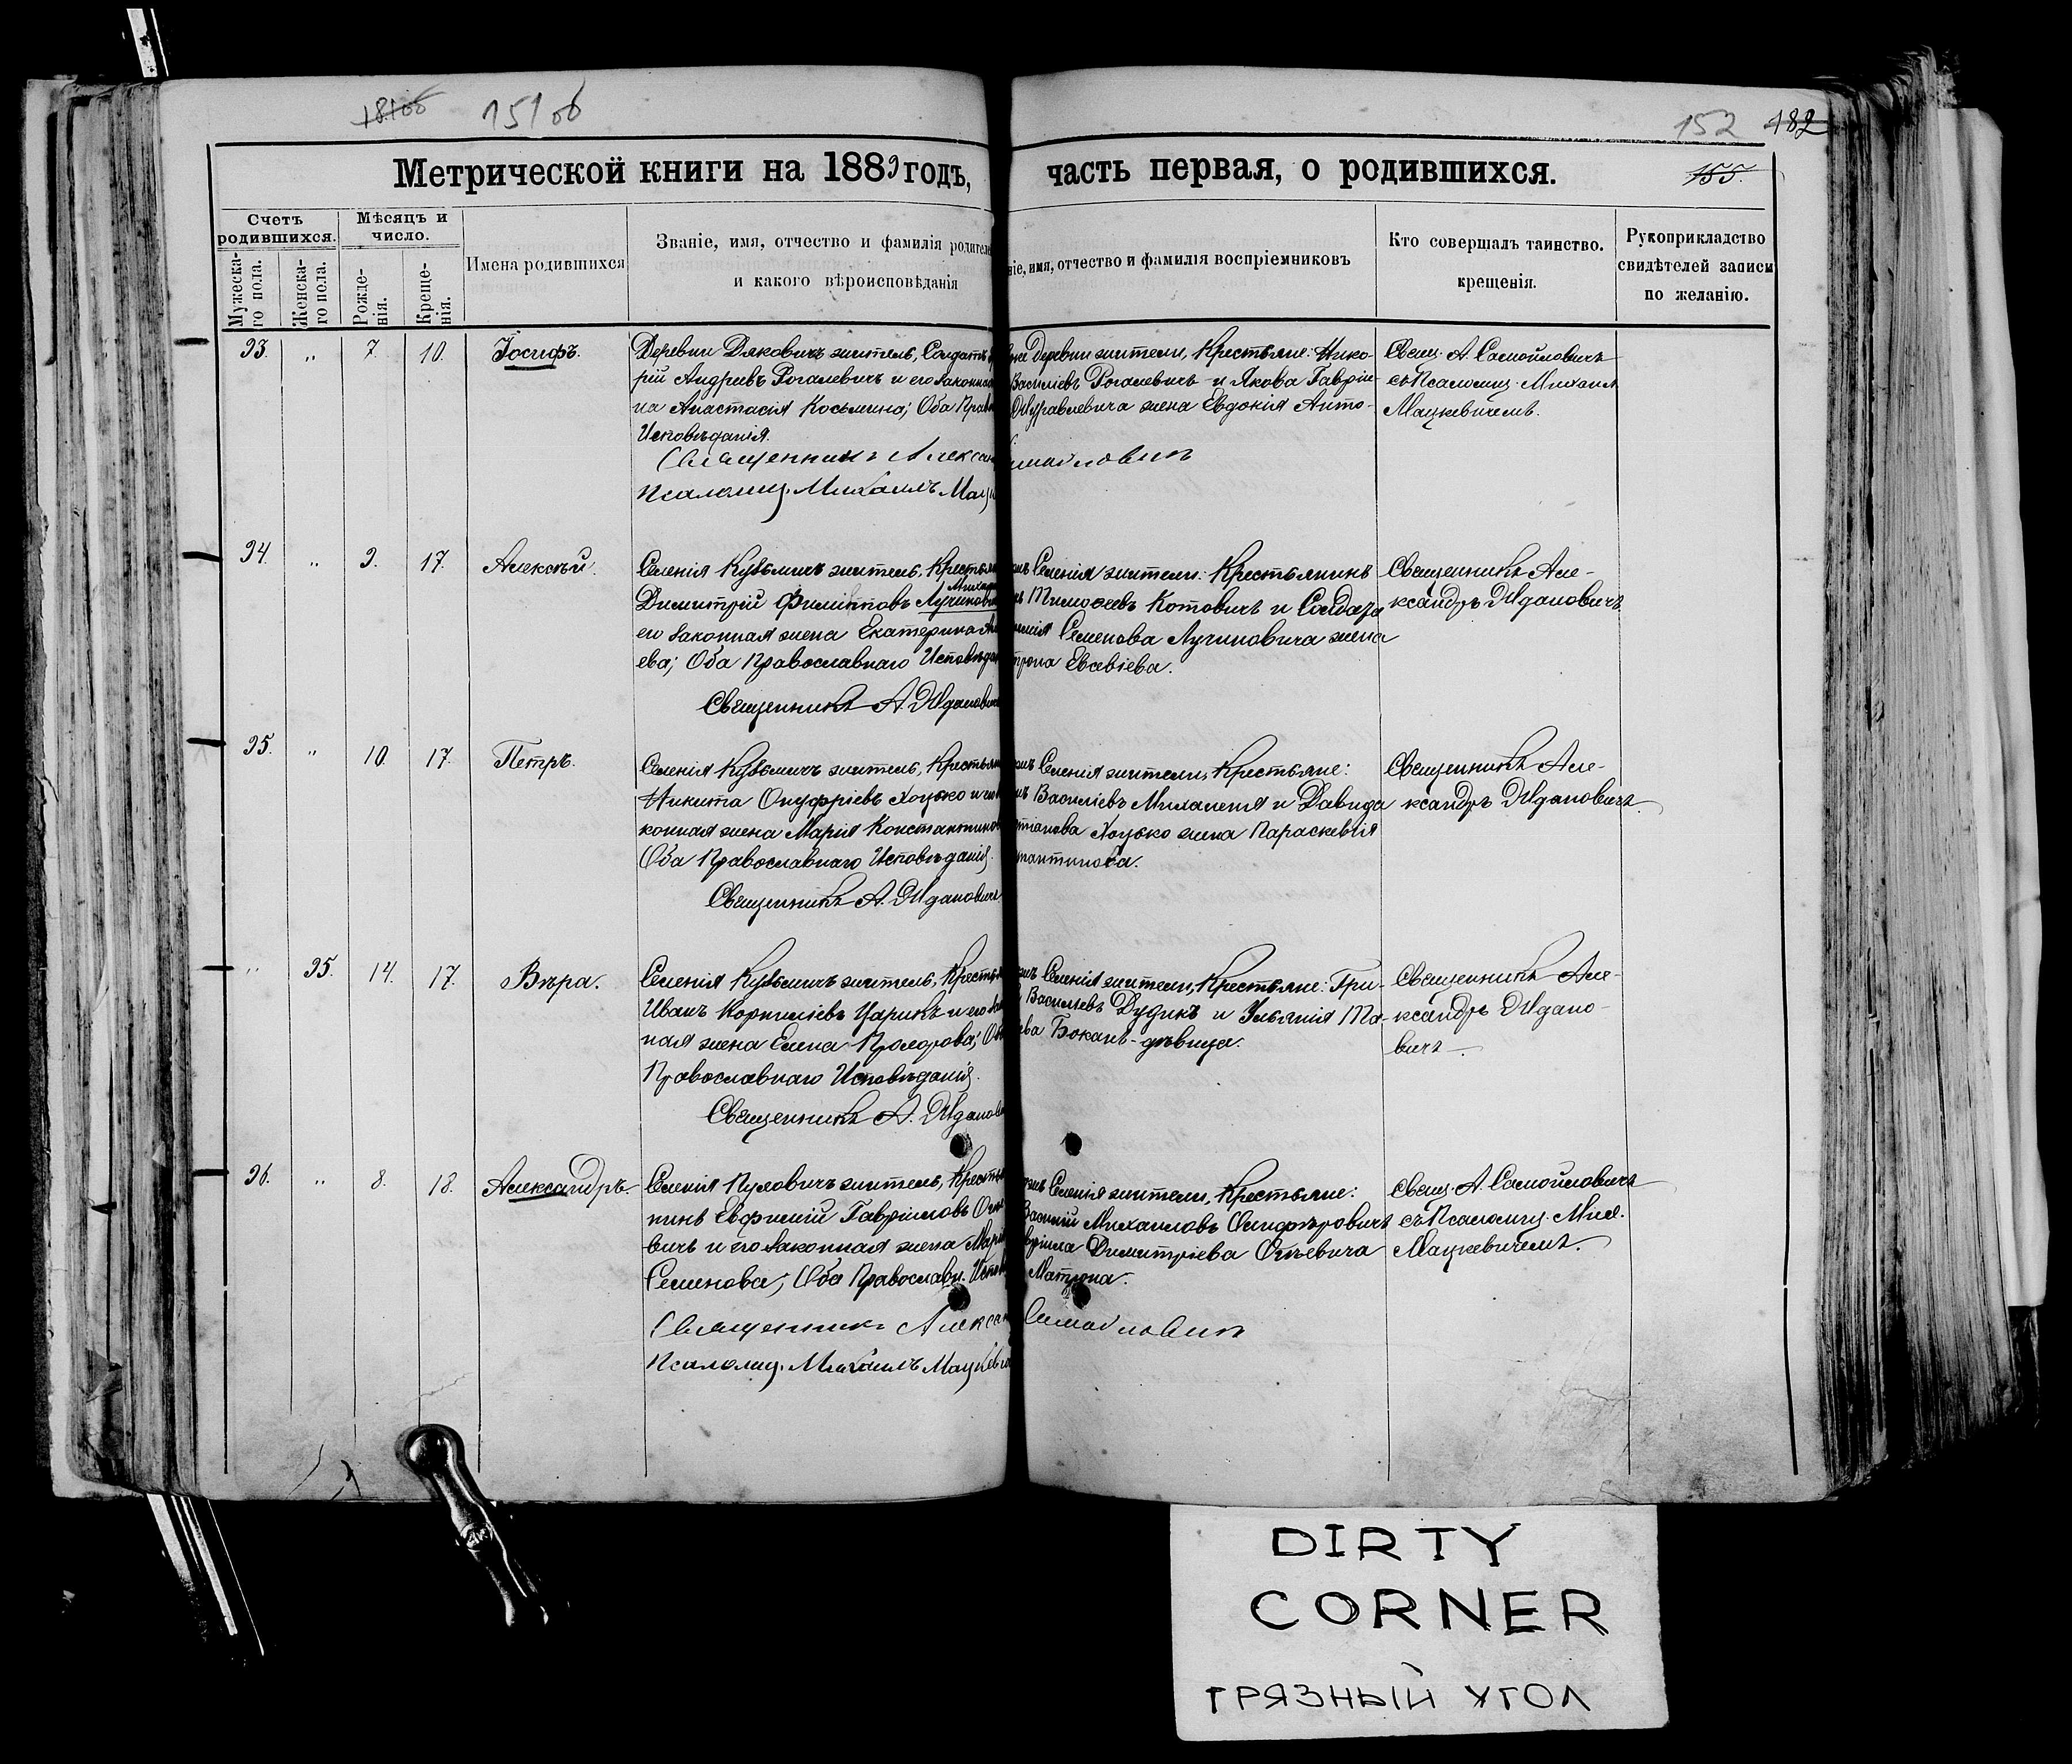 181об 151об
152 182
Метрической книги на 1889 годъ, часть первая, о родившихся.
155.
Счетъ родившихся.
Мѣсяцъ и число.
Имена родившихся
Званіе, имя, отчество и фамилія родител
и какого вѣроисповѣданія
ніе, имя, отчество и фамилія воспріемниковъ
Кто совершалъ таинство.
крещенія.
Рукоприкладство
свидѣтелей записи
по желанію.
Мужеска-
го пола.
Женска-
го пола.
Рожде-
нія.
Креще-
нія.
93. " 7. 10. Іосифъ.
Деревни Дяковичъ житель, Солдатъ
рій Андреевъ Рогалевичъ и его законная
на Анастасія Косьмина; Оба Прав
Исповѣданія.
Священникъ Алексан
Псаломщ. Михаилъ Мац
же деревни жители, Крестьяне: Нико-
Василіевъ Рогалевичъ и Якова Гавріи-
Журавлевича жена Евдокія Анто-
Самойловичъ
Свящ. А. Самойловичъ
съ Псаломщ. Михаил
Мацкевичемъ.
94. " 9. 17. Алексѣй.
Селенія Кузьмичъ житель, Крестьян
Димитрій Филиповъ Лучинови
его законная жена Екатерина
ева; Оба Православнаго Исповѣдан
Священникъ А Жданович
Селенія жители: Крестьянинъ
Тимоѳеевъ Котовичъ и Солдата
Семенова Лучиновича жена
трона Евсевіева.
Священникъ Але-
ксандръ Ждановичъ
95. " 10. 17. Петръ.
Селенія Кузьмичъ житель, Крестьян
Никита Онуфріевъ Хоцько и его
конная жена Марія Константинов
Оба Православнаго Исповѣданія.
Священникъ А. Ждановичъ
Селенія жители, Крестьяне:
Василіевъ Михаленя и Давида
Хоцько жена Параскевія
стантинова.
Священникъ Але-
ксандръ Ждановичъ.
" 95. 14. 17. Вѣра.
Селенія Кузьмичъ житель, Кресть
Иванъ Корниліевъ Царикъ и его
ная жена Елена Прохорова; Об
Православнаго Исповѣданія.
Священникъ А. Жданов
Селенія жители, Крестьяне: Гри-
Василіевъ Дудикъ и Ульянія Ма-
ева Бокань - дѣвица.
Священникъ Але-
ксандръ Ждано-
вичъ.
96. " 8. 18. Александръ.
Селенія Пуховичъ житель, Кресть
нинъ Евфимій Гавріиловъ
вичъ и его законная жена Мар
Семенова; Оба Православн. Испов
Священникъ Алексан
Псаломщ. Михаилъ Мацкев
Селенія жители, Крестьяне:
Василій Михаиловъ Олифѣровичъ
Димитріева Огіевича
Матрона.
Самойловичъ
Свящ. А. Самойловичъ
съ Псаломщ. Мих.
Мацкевичемъ.
DIRTY
CORNER
ГРЯЗНЫЙ УГОЛ